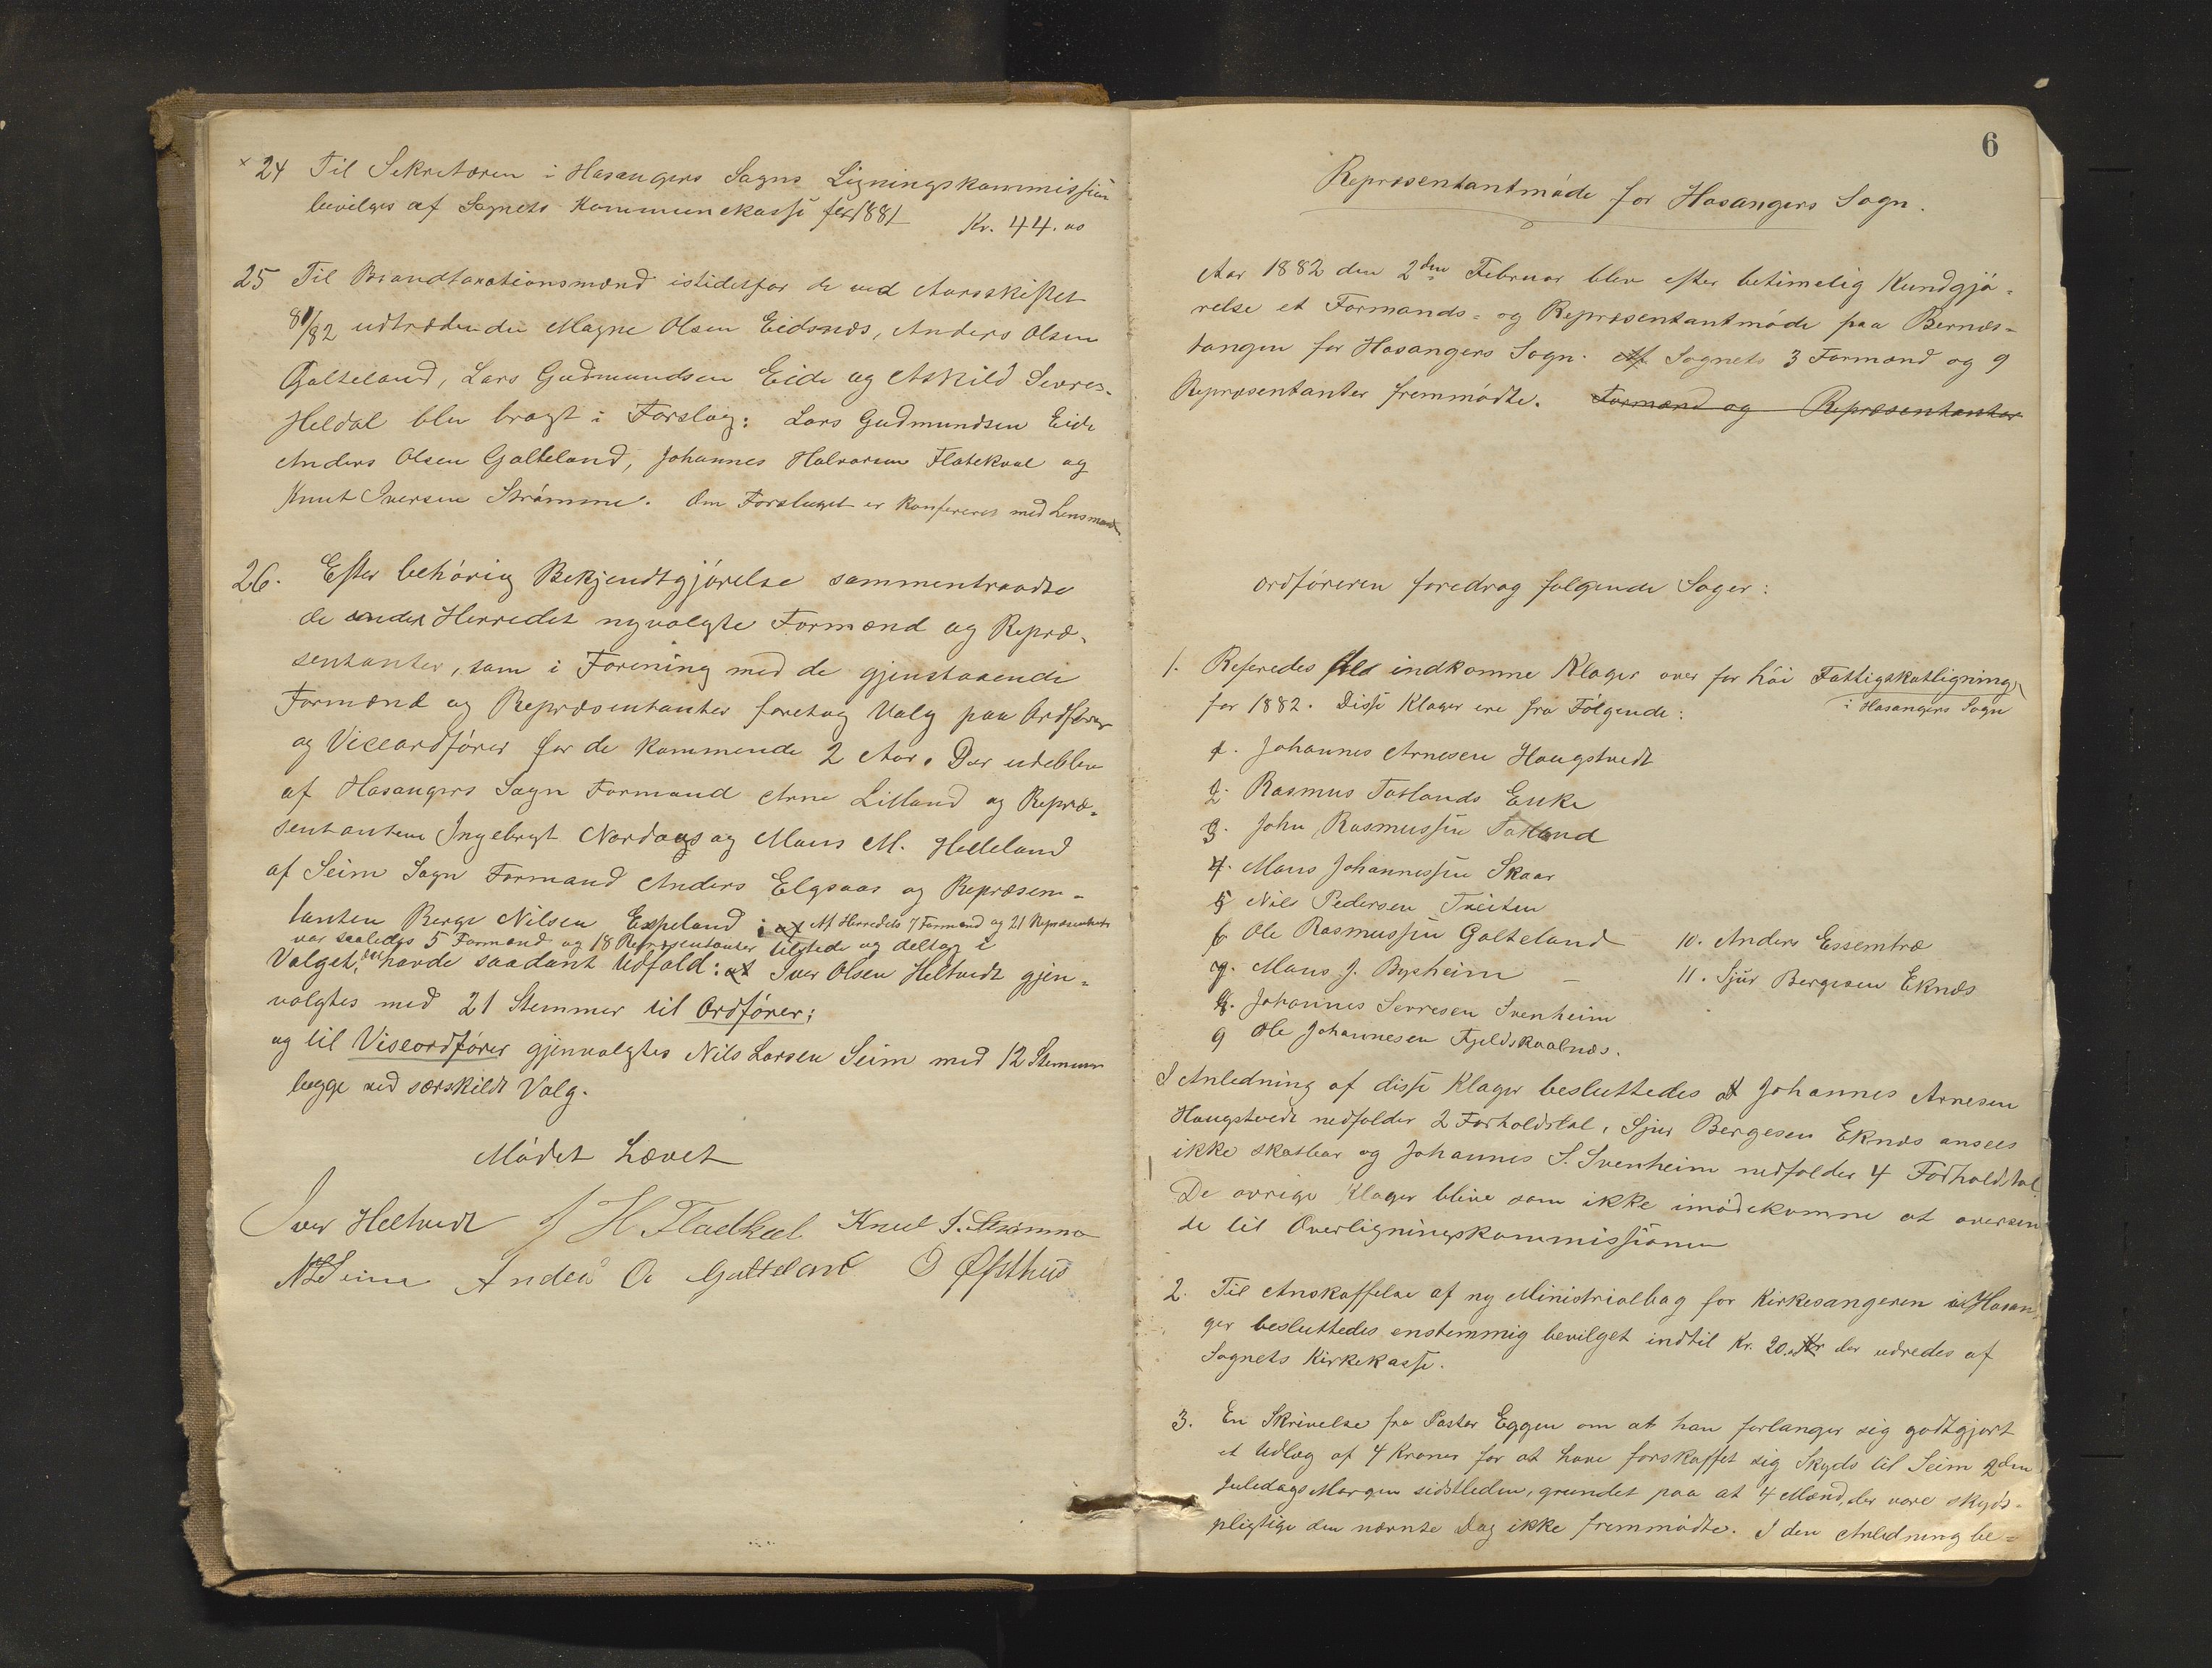 × 24 Til Sekretæren i Hosangers Sogns Ligningskommission
bevilges af Sognets Kommunekasse for 1881 Kr. 44.00
25 Til Brandtaxationsmænd istidetfor de ved Aarsskiftet
81/82 udtrædende Magne Olsen Eidsnæs, Anders Olsen
Galteland, Lars Gudmundsen Eide og Askild Sevres.
Heldal blev bragt i Forslag: Lars Gudmundsen Eide
Anders Olsen Galteland, Johannes Halvorsen Flatekval og
Knut Iversen Strømme. Om Forslaget er konfereret med Lensmand
26. Efter behørig Bekjendtgjørelse sammentraadte
de under Herredet nyvalgte Formænd og Repræ-
sentanter, som i Forening med de gjenstaaende
Formænd og Repræsentanter foretog Valg paa Ordfører
og Viceordfører for de kommende 2 Aar. Der udeblev
af Hosangers Sogn Formand Arne Litland og Repræ-
sentanterne Ingebrigt Nordaas og Mons M. Helleland
af Seim Sogn Formand Anders Elgsaas og Repræsen-
tanten Berge Nilsen Espeland; Af Herredets 7 Formænd og 21 Repræsentanter
var saaledes 5 Formænd og 18 Repræsentanter tilstede og deltog i
Valget, der havde saadant Udfald: at Iver Olsen Heltvedt gjen-
valgtes med 21 Stemmer til Ordfører;
og til Viseordfører gjenvalgtes Nils Larsen Seim med 12 Stemmer
begge ved særskildt Valg.
Mødet hævet
Iver Heltvedt J H Flatekval Knut I. Strømme
NLSeim Anders O Galteland O Øfsthus
6
Repræsentantmøde for Hosangers Sogn.
Aar 1882 den 2den Februar blev efter betimelig Kundgjø-
relse et Formands- og Repræsentantmøde paa Bernæs-
tangen for Hosangers Sogn. Af Sognets 3 Formænd og 9
Repræsentanter fremmødte. Formænd og Repræsentanter
Ordføreren foredrog følgende Sager:
1. Referedes de indkomne Klager over for høi Fattigskatligning
for 1882. Disse Klager ere fra Følgende: i Hosangers Sogn
1. Johannes Arnesen Hougstvedt
2. Rasmus Totlands Enke
3. John Rasmussen Totland
4. Mons Johannessen Skaar
5 Nils Pedersen Tveiten
6 Ole Rasmussen Galteland 10. Anders Essemtræ
7. Mons J. Bysheim 11. Sjur Bergesen Eknæs
8. Johannes Severesen Svenheim
9 Ole Johannesen Fjeldskaalnæs.
I Anledning af disse Klager besluttedes at Johannes Arnesen
Hougstvedt nedfalder 2 Forholdstal, Sjur Bergesen Eknæs ansees
ikke skatbar og Johannes S. Svenheim nedfalder 4 Forholdstal.
De øvrige Klager blive som ikke imødekomne at oversen
de til Overligningskommissionen
2. Til Anskaffelse af ny Ministrialbog for Kirkesangeren i Hosan
ger besluttedes enstemmig bevilget indtil Kr. 20. der udredes af
Sognets Kirkekasse.
3. En Skrivelse fra Pastor Eggen om at han forlanger sig godtgjort
et Udlæg af 4 Kroner for at have forskaffet sig Skyds til Seim 2den
Juledags Morgen sidstleden, grundet paa at 4 Mænd, der vare skyds-
pligtige den nævnte Dag ikke fremmødte. I den Anledning be-